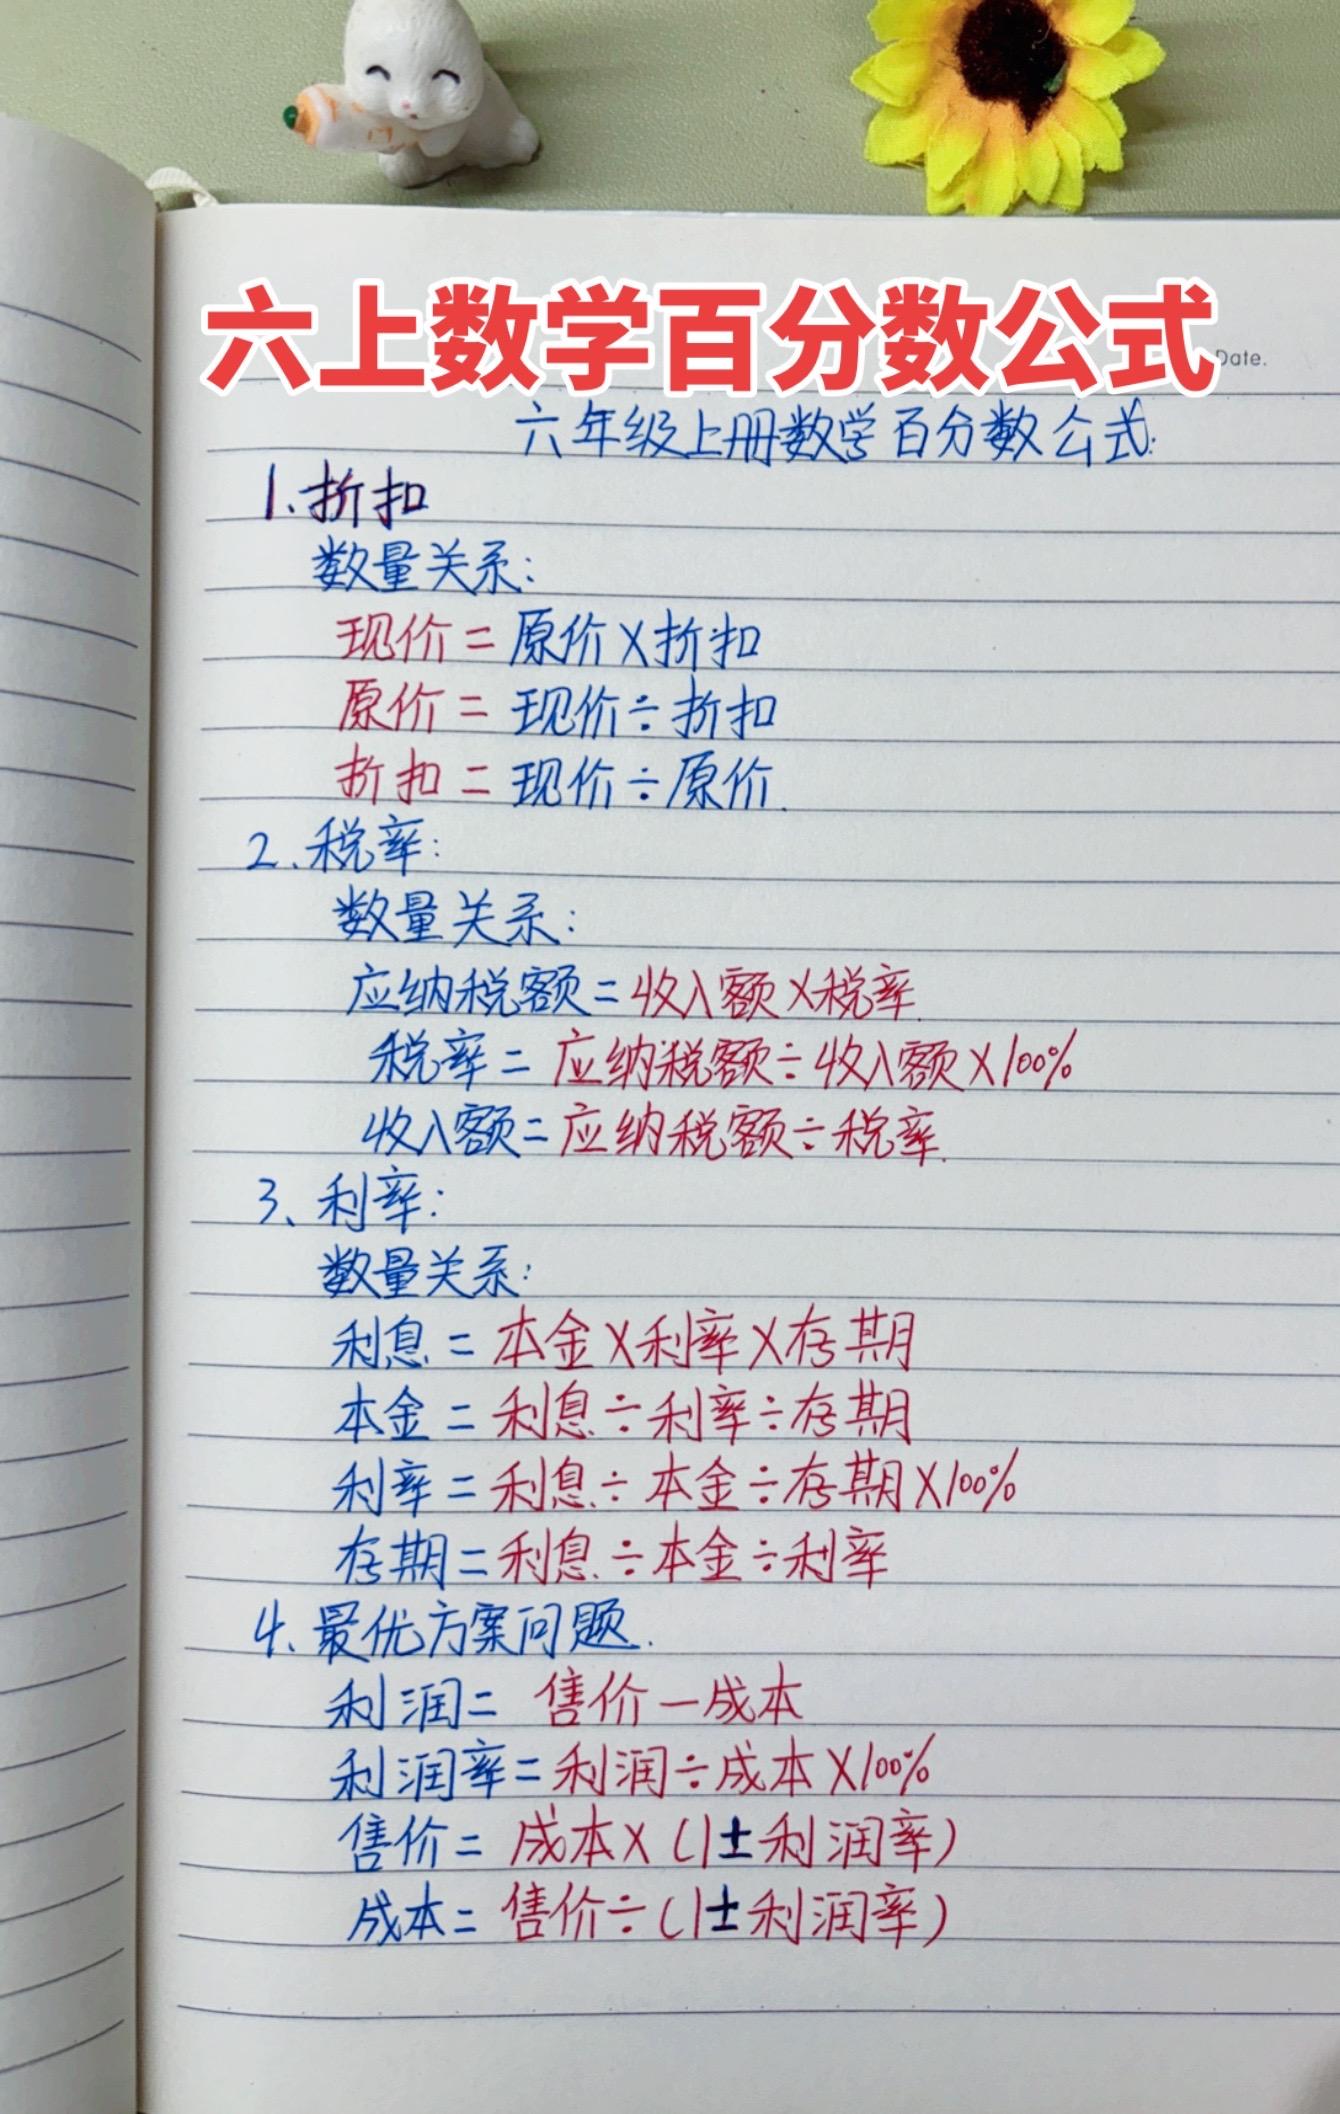 六上数学百分数公式
Date.
六年级上册数学百分数公式:
1.折扣
数量关系:
现价=原价×折扣
原价=现价÷折扣
折扣=现价÷原价.
2.税率:
数量关系:
应纳税额=收入额×税率.
税率=应纳税额÷收入额×100%
收入额=应纳税额÷税率.
3、利率:
数量关系:
利息=本金×利率×存期
本金=利息÷利率÷存期
利率=利息÷本金÷存期×100%
存期=利息÷本金÷利率
4、最优方案问题.
利润=售价-成本
利润率=利润÷成本×100%
售价=成本×(1±利润率)
成本=售价÷(1±利润率)